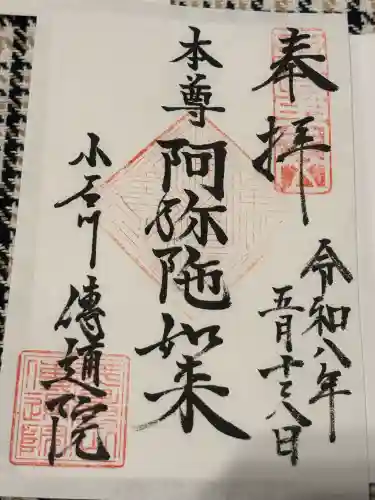 奉拝
令和八年
五月十六日
本尊
阿弥陀如来
小石川
傳通院